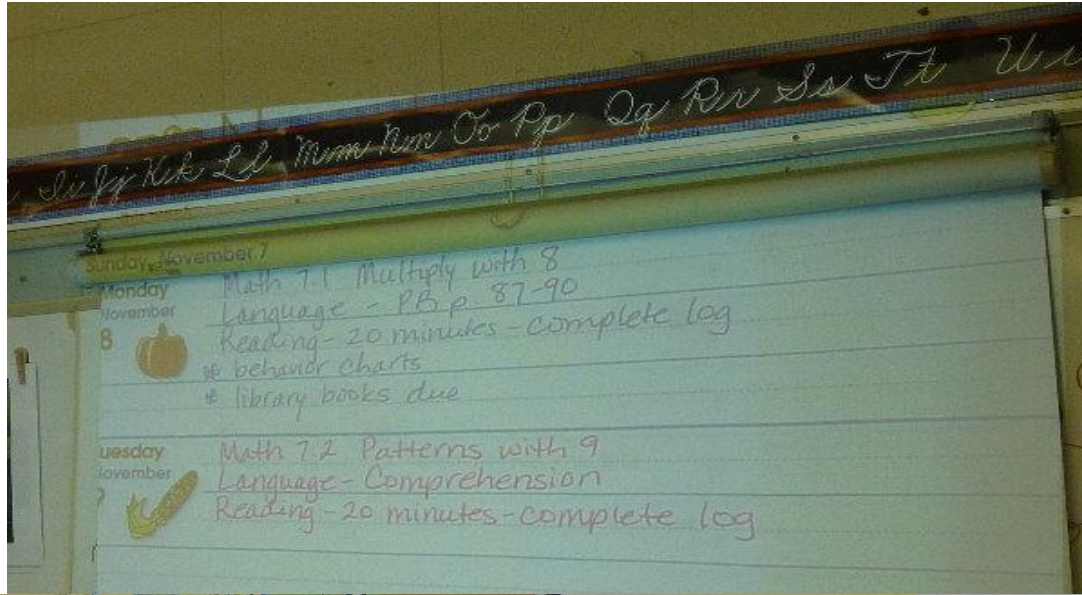 Ii Jj Kk Ll Mm Nn Oo Pp Qq Rr Ss Tt Uu
Sunday, November 7
Monday
November
8
Math 7.1 Multiply with 8
Language - P.B. p. 87-90
Reading - 20 minutes - complete log
* behavior charts
* library books due
uesday
November
Math 7.2 Patterns with 9
Language - Comprehension
Reading - 20 minutes - complete log